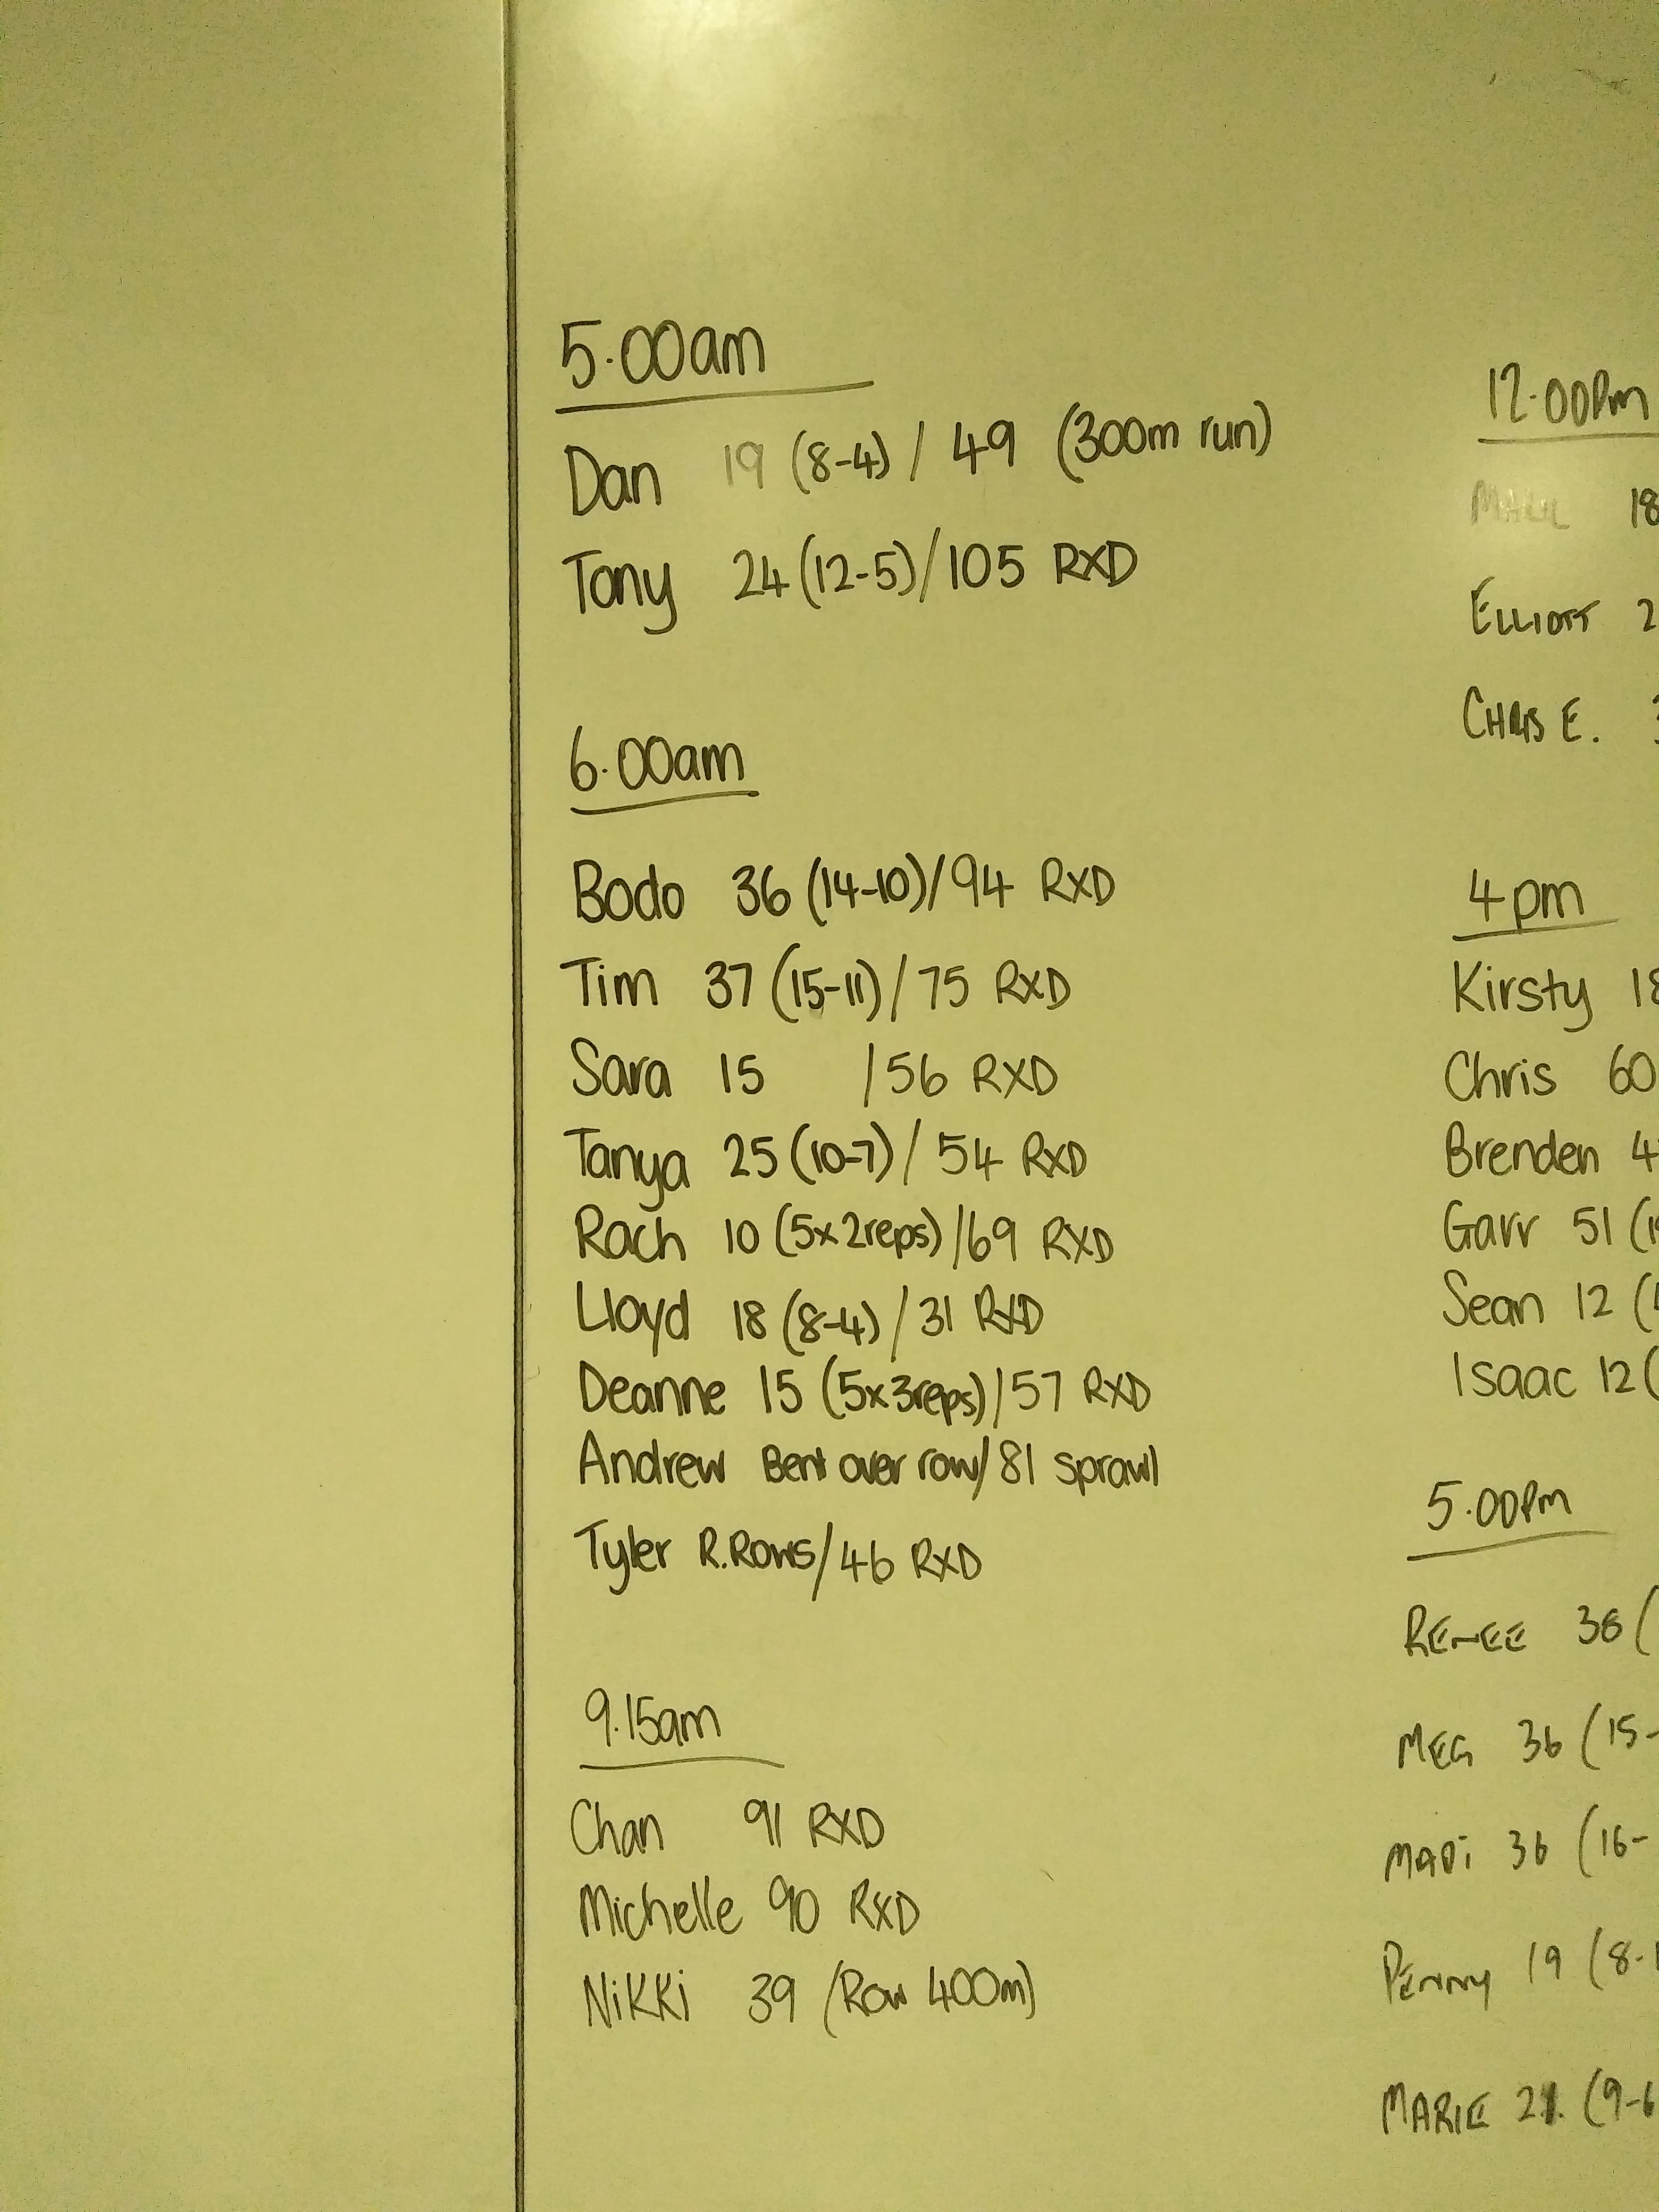 5.00am
Dan 19 (8-4) / 49 (300m run)
Tony 24 (12-5)/105 RXD
6.00am
Bodo 36 (14-10)/94 RXD
Tim 37 (15-11)/75 RXD
Sara 15 /56 RXD
Tanya 25 (10-7)/ 54 RXD
Rach 10 (5x2reps)/69 RXD
Lloyd 18 (8-4)/31 RXD
Deanne 15 (5x3reps)/57 RXD
Andrew Bent over row/81 sprawl
Tyler R.Rows/46 RXD
9.15am
Chan 91 RXD
Michelle 90 RXD
NiKKi 39 (Row 400m)
12.00Pm
18
ELLIOTT 2
CHRIS E.
4pm
Kirsty 18
Chris 60
Brenden 4
Garr 51 (1
Sean 12 (
Isaac 12 (
5.00Pm
RENEE 36 (
MEG 36 (15-
MADi 36 (16-
PENNY 19 (8-
MARIE 21. (9-6